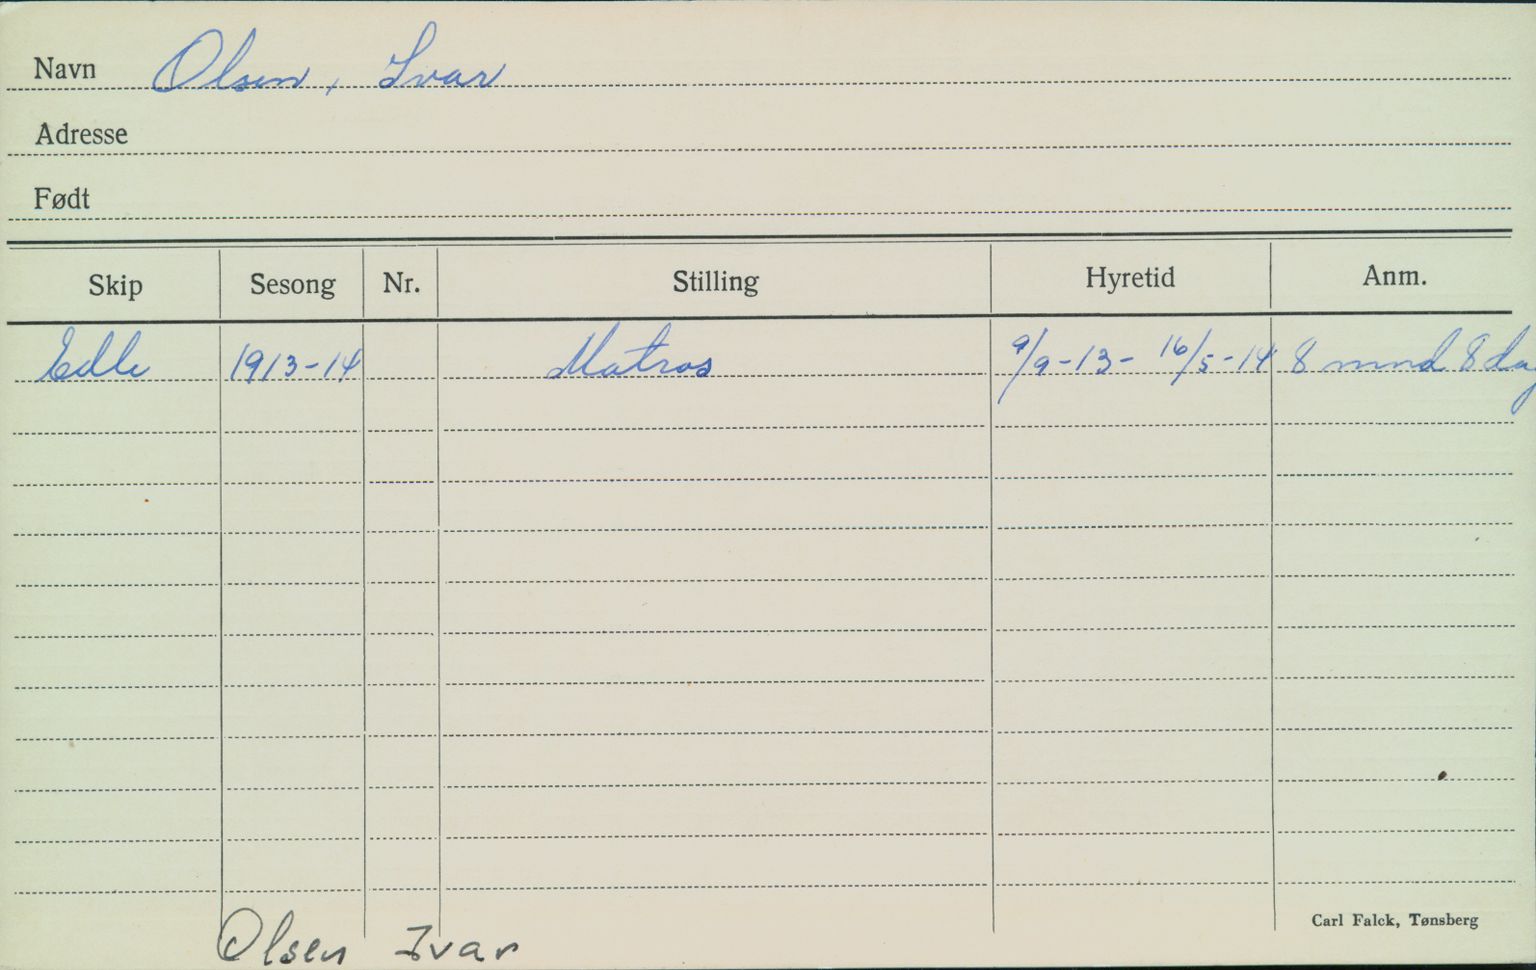 Navn Olsen, Ivar
Adresse
Født
Skip Sesong Nr. Stilling Hyretid Anm.
Edle 1913-14 Matros 9/9-13- 16/5-14 8 mnd 8 dag
Carl Falck, Tønsberg
Olsen Ivar